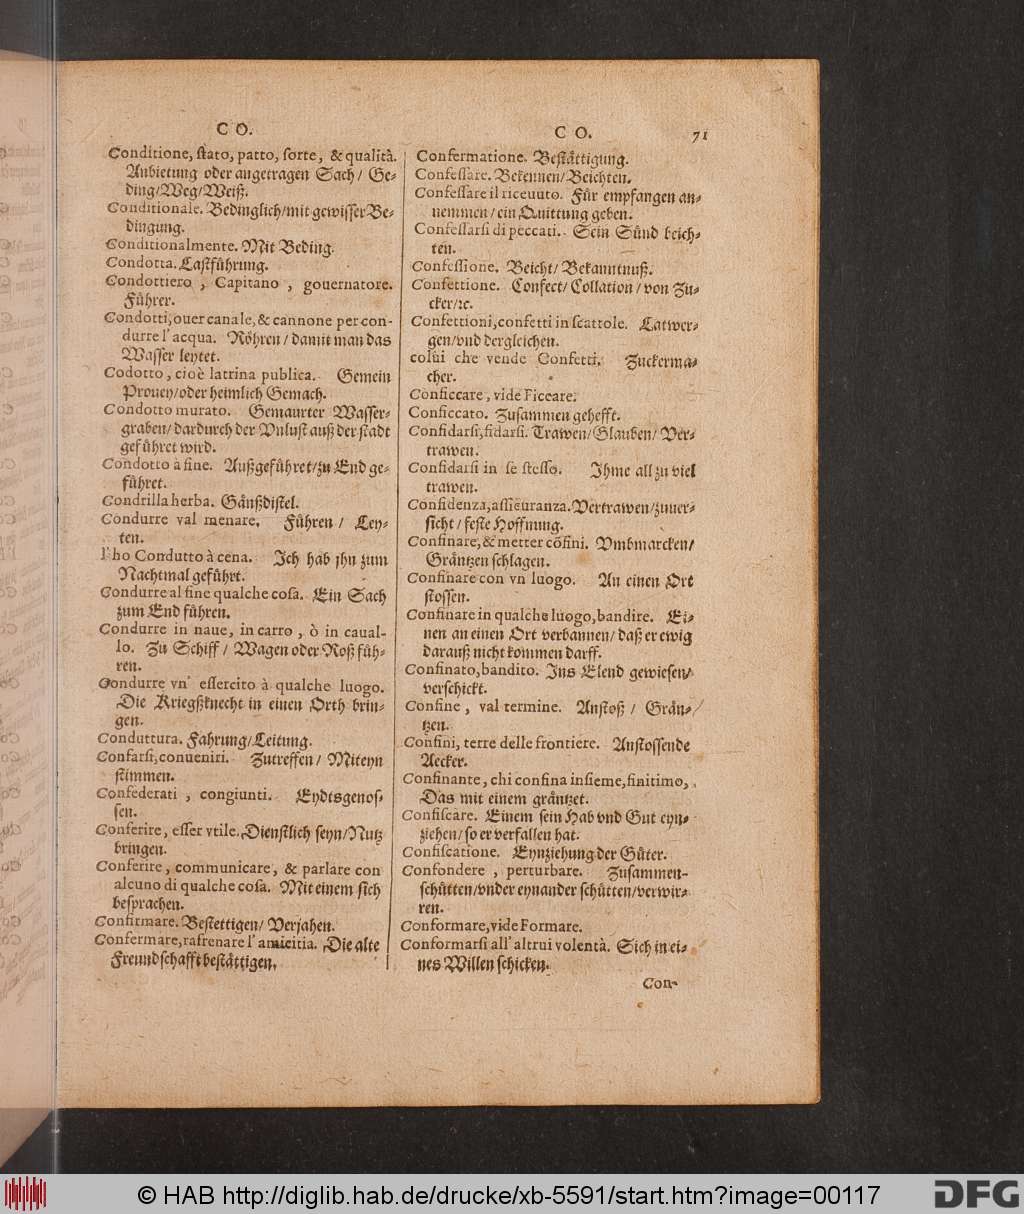 C O.
Conditione, ſtato, patto, ſorte, & qualità.
Anbietung oder angetragen Sach / Ge-
ding/Weg/Weiß.
Conditionale. Bedinglich/mit gewiſſer Be-
dingung.
Conditionalmente. Mit Beding.
Condotta. Laſtführung.
Condottiero , Capitano , gouernatore.
Führer.
Condotti, ouer canale, & cannone per con-
durre l'acqua. Röhren / damit man das
Waſſer leytet.
Codotto, cioè latrina publica. Gemein
Prouey/oder heimlich Gemach.
Condotto murato. Gemaurter Waſſer-
graben/ dardurch der Vnluſt auß der ſtadt
geführet wird.
Condotto à fine. Außgeführet/zu End ge-
führet.
Condrilla herba. Gänßdiſtel.
Condurre val menare. Führen / Ley-
ten.
l'ho Condutto à cena. Ich hab jhn zum
Nachtmal geführt.
Condurre al fine qualche coſa. Ein Sach
zum End führen.
Condurre in naue, in carro , ò in caual-
lo. Zu Schiff / Wagen oder Roß füh-
ren.
Condurre vn' eſſercito à qualche luogo.
Die Kriegßknecht in einen Orth brin-
gen.
Conduttura. Fahrung/Leitung.
Confarſi, conueniri. Zutreffen / Miteyn
ſtimmen.
Confederati , congiunti. Eydtsgenoſ-
ſen.
Conferire, eſſer vtile. Dienſtlich ſeyn/Nutz
bringen.
Conferire, communicare, & parlare con
alcuno di qualche coſa. Mit einem ſich
beſprachen.
Confirmare. Beſtettigen/ Verjahen.
Confermare, rafrenare l'amicitia. Die alte
Freundſchafft beſtättigen.
C O.
71
Confermatione. Beſtättigung.
Confeſſare. Bekennen/Beichten.
Confeſſare il riceuuto. Für empfangen an-
nemmen / ein Quittung geben.
Confeſſarſi di peccati. Sein Sünd beich-
ten.
Confeſſione. Beicht/ Bekanntnuß.
Confettione. Confect/ Collation / von Zu-
cker/ꝛc.
Confettioni, confetti in ſcattole. Latwer-
gen/vnd dergleichen.
colui che vende Confetti. Zuckerma-
cher.
Conficcare, vide Ficcare.
Conficcato. Zuſammen gehefft.
Confidarſi, fidarſi. Trawen/Glauben/ Ver-
trawen.
Confidarſi in ſe ſteſſo. Ihme all zu viel
trawen.
Confidenza, aſſicuranza. Vertrawen/zuuer-
ſicht / feſte Hoffnung.
Confinare, & metter cõfini. Vmbmarcken/
Gräntzen ſchlagen.
Confinare con vn luogo. An einen Ort
ſtoſſen.
Confinare in qualche luogo, bandire. Ei-
nen an einen Ort verbannen/ daß er ewig
darauß nicht kommen darff.
Confinato, bandito. Ins Elend gewieſen/
verſchickt.
Confine , val termine. Anſtoß / Grän-
tzen.
Confini, terre delle frontiere. Anſtoſſende
Aecker.
Confinante, chi confina inſieme, finitimo.
Das mit einem gräntzet.
Confiſcare. Einem ſein Hab vnd Gut eyn-
ziehen/ ſo er verfallen hat.
Confiſcatione. Eynziehung der Güter.
Confondere , perturbare. Zuſammen-
ſchütten/vnder eynander ſchütten/verwir-
ren.
Conformare, vide Formare.
Conformarſi all' altrui volentà. Sich in ei-
nes Willen ſchicken.
Con-
© HAB http://diglib.hab.de/drucke/xb-5591/start.htm?image=00117
DFG